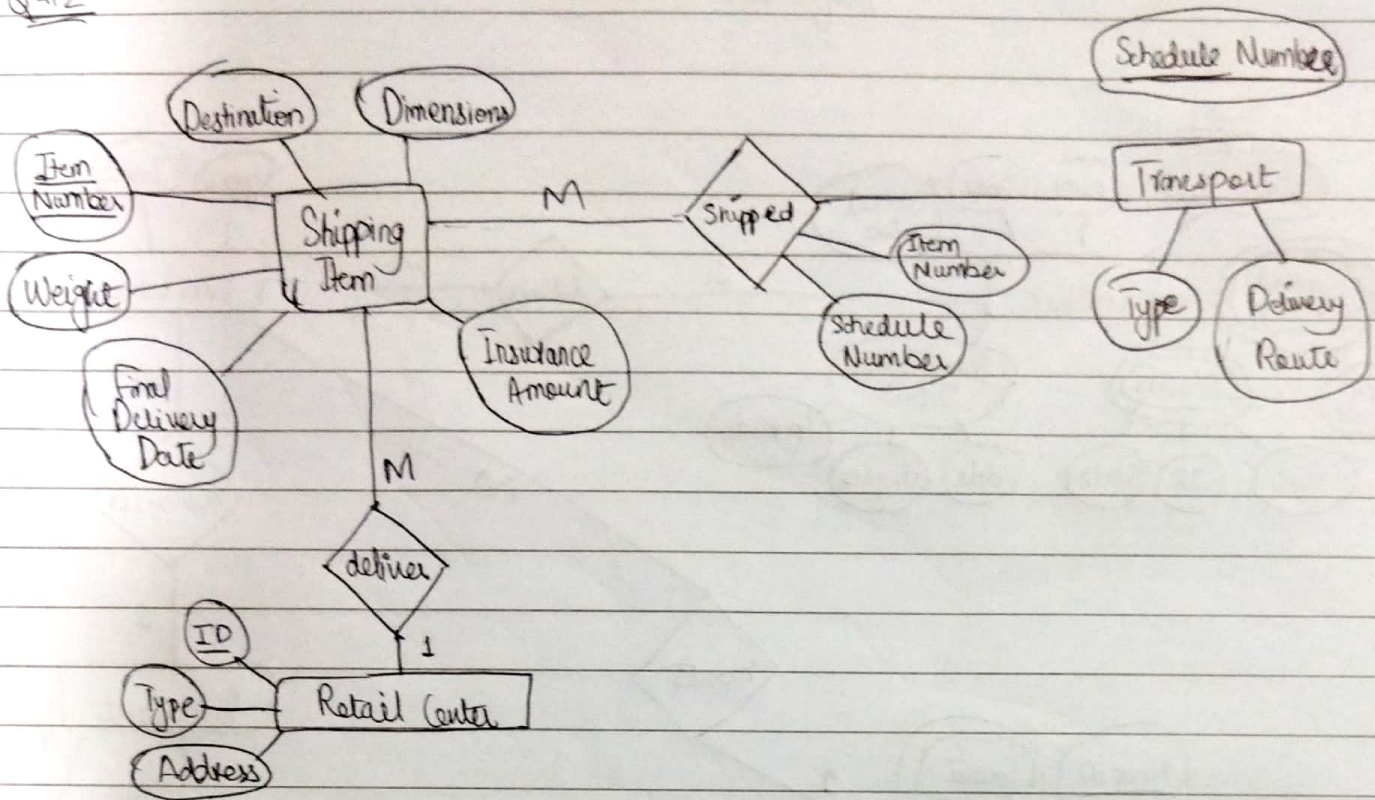 Quiz
Schedule Number
Destination
Dimensions
Item
Number
Shipping
Item
M
Shipped
Transport
Item
Number
Weight
Schedule
Number
Type
Delivery
Route
Insurance
Amount
Final
Delivery
Date
M
deliver
ID
1
Type
Retail Center
Address